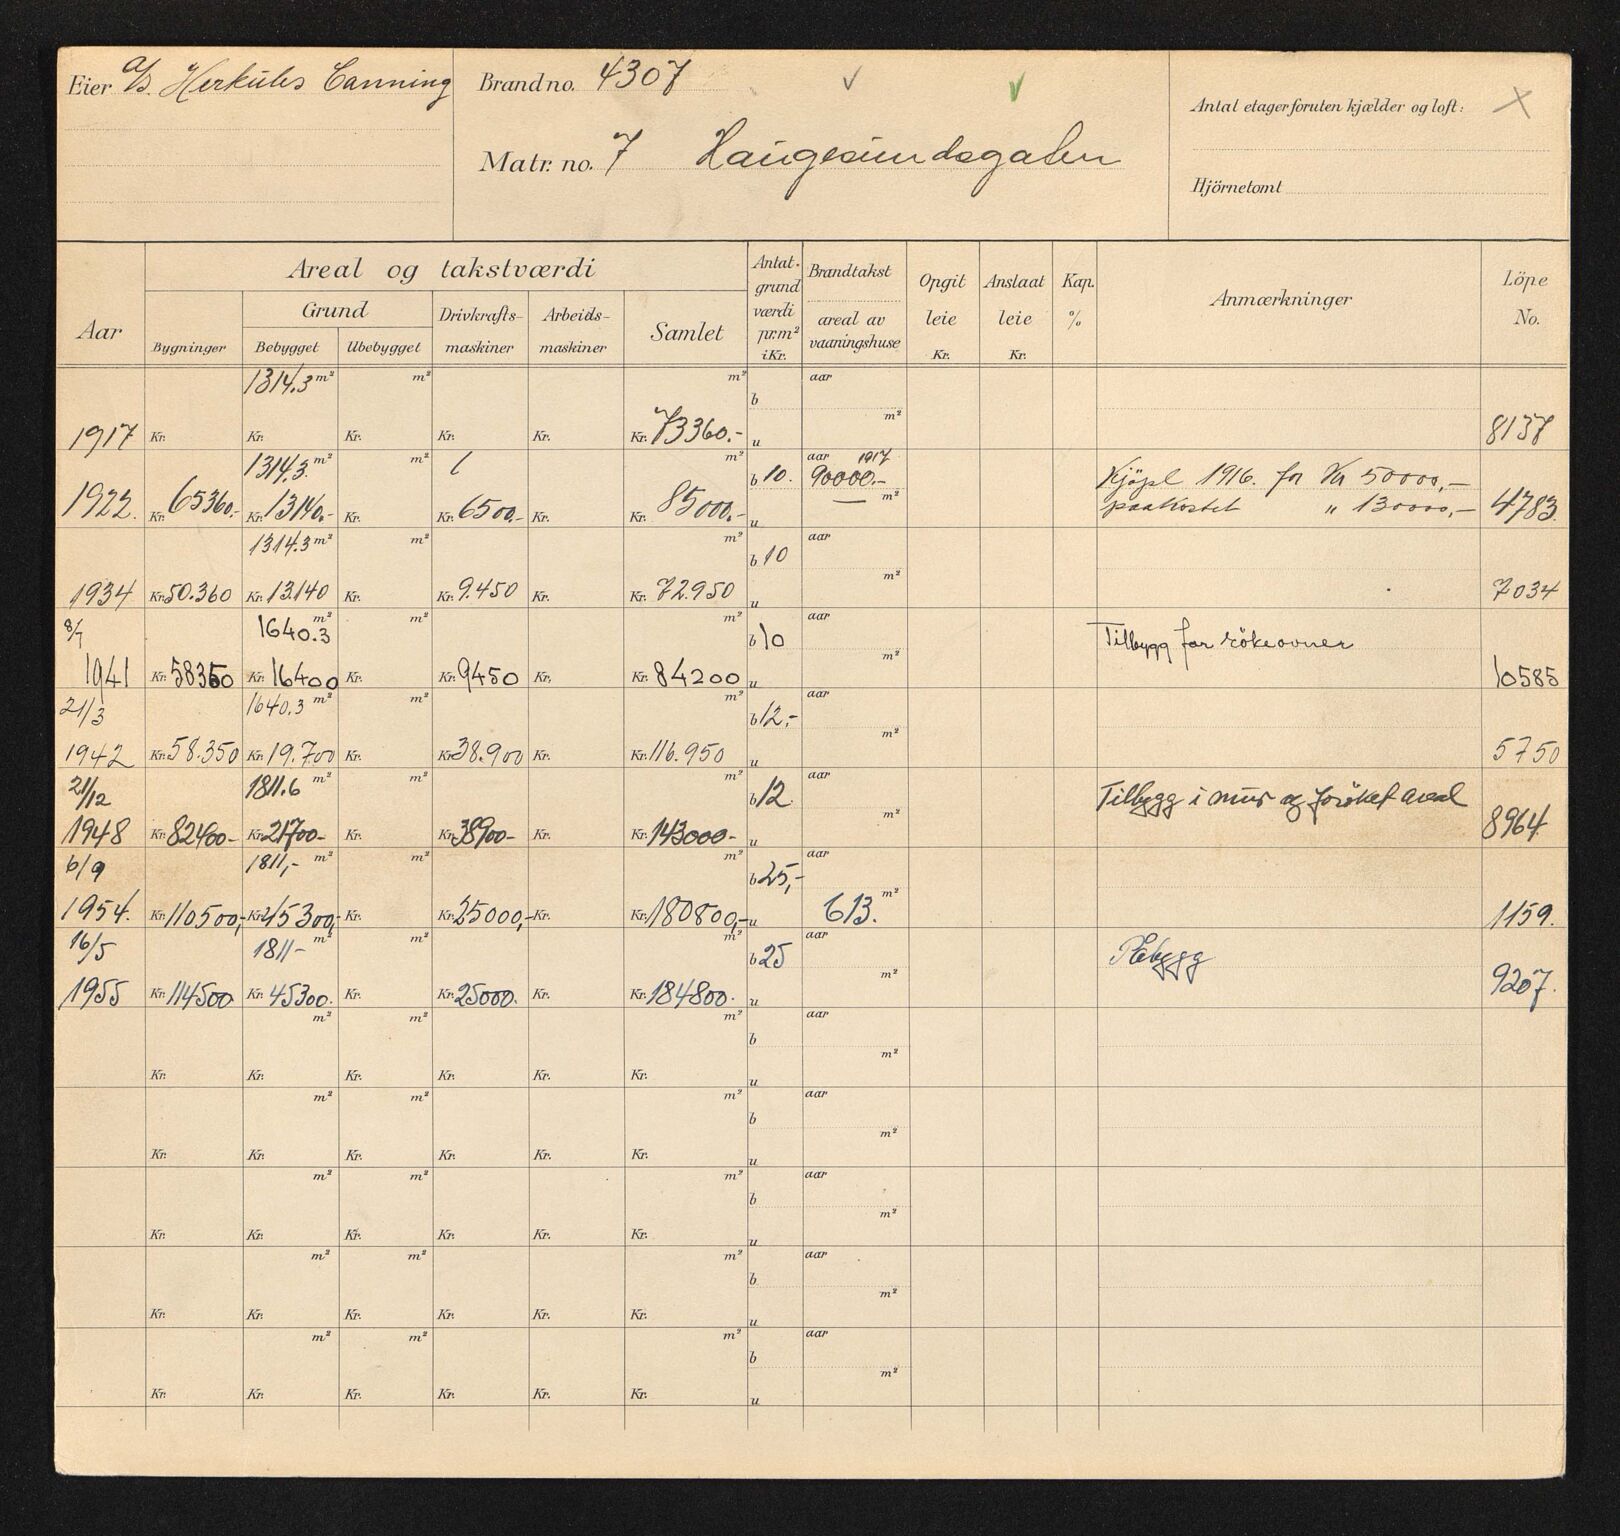 Eier A/S. Herkules Canning
Brandno. 4307
Matr. no. 7 Haugesundsgaten
Antal etager foruten kjælder og loft:
Hjörnetomt
Aar
Areal og takstværdi
Bygninger
Grund
Bebygget
Ubebygget
Drivkrafts-
maskiner
Arbeids-
maskiner
Samlet
Antat.
grund
værdi
pr.m²
i Kr.
Brandtakst
areal av
vaaningshuse
Opgit
leie
Kr.
Anslaat
leie
Kr.
Kap.
%
Anmærkninger
Löpe
No.
1314.3 m² m² m² b aar
m²
1917 Kr. Kr. Kr. Kr. Kr. Kr. 73360.- u 8137
1314.3 m² m² 1 m² b 10. aar 1917
90000.- Kjöpt 1916. for Kr 50000,-
m²
1922. Kr. 65360.- Kr. 13140.- Kr. Kr. 6500.- Kr. Kr. 85000.- u paakostet " 130000,- 4783.
1314.3 m² m² m² b 10 aar
m²
1934 Kr. 50.360 Kr. 13.140 Kr. Kr. 9.450 Kr. Kr. 72.950 u 7034
8/7 1640.3 m² m² m² b 10 aar Tilbygg for rökeovner
m²
1941 Kr. 58350 Kr. 16400 Kr. Kr. 9450 Kr. Kr. 84200 u 10585
21/3 1640.3 m² m² m² b 12,- aar
m²
1942 Kr. 58.350 Kr. 19.700 Kr. Kr. 38.900 Kr. Kr. 116.950 u 5750
21/12 1811.6 m² m² m² b 12 aar Tilbygg i mur og forøket areal
m²
1948 Kr. 82400- Kr. 21700- Kr. Kr. 38900- Kr. Kr. 143000- u 8964
6/9 1811,- m² m² m² b 25,- aar
m²
1954. Kr. 110500,- Kr. 45300,- Kr. Kr. 25000,- Kr. Kr. 180800,- u 613. 1159.
16/5 1811- m² m² m² b 25 aar Påbygg
m²
1955 Kr. 114500 Kr. 45300. Kr. Kr. 25000. Kr. Kr. 184800. u 9207.
m² m² m² b aar
m²
Kr. Kr. Kr. Kr. Kr. Kr. u
m² m² m² b aar
m²
Kr. Kr. Kr. Kr. Kr. Kr. u
m² m² m² b aar
m²
Kr. Kr. Kr. Kr. Kr. Kr. u
m² m² m² b aar
m²
Kr. Kr. Kr. Kr. Kr. Kr. u
m² m² m² b aar
m²
Kr. Kr. Kr. Kr. Kr. Kr. u